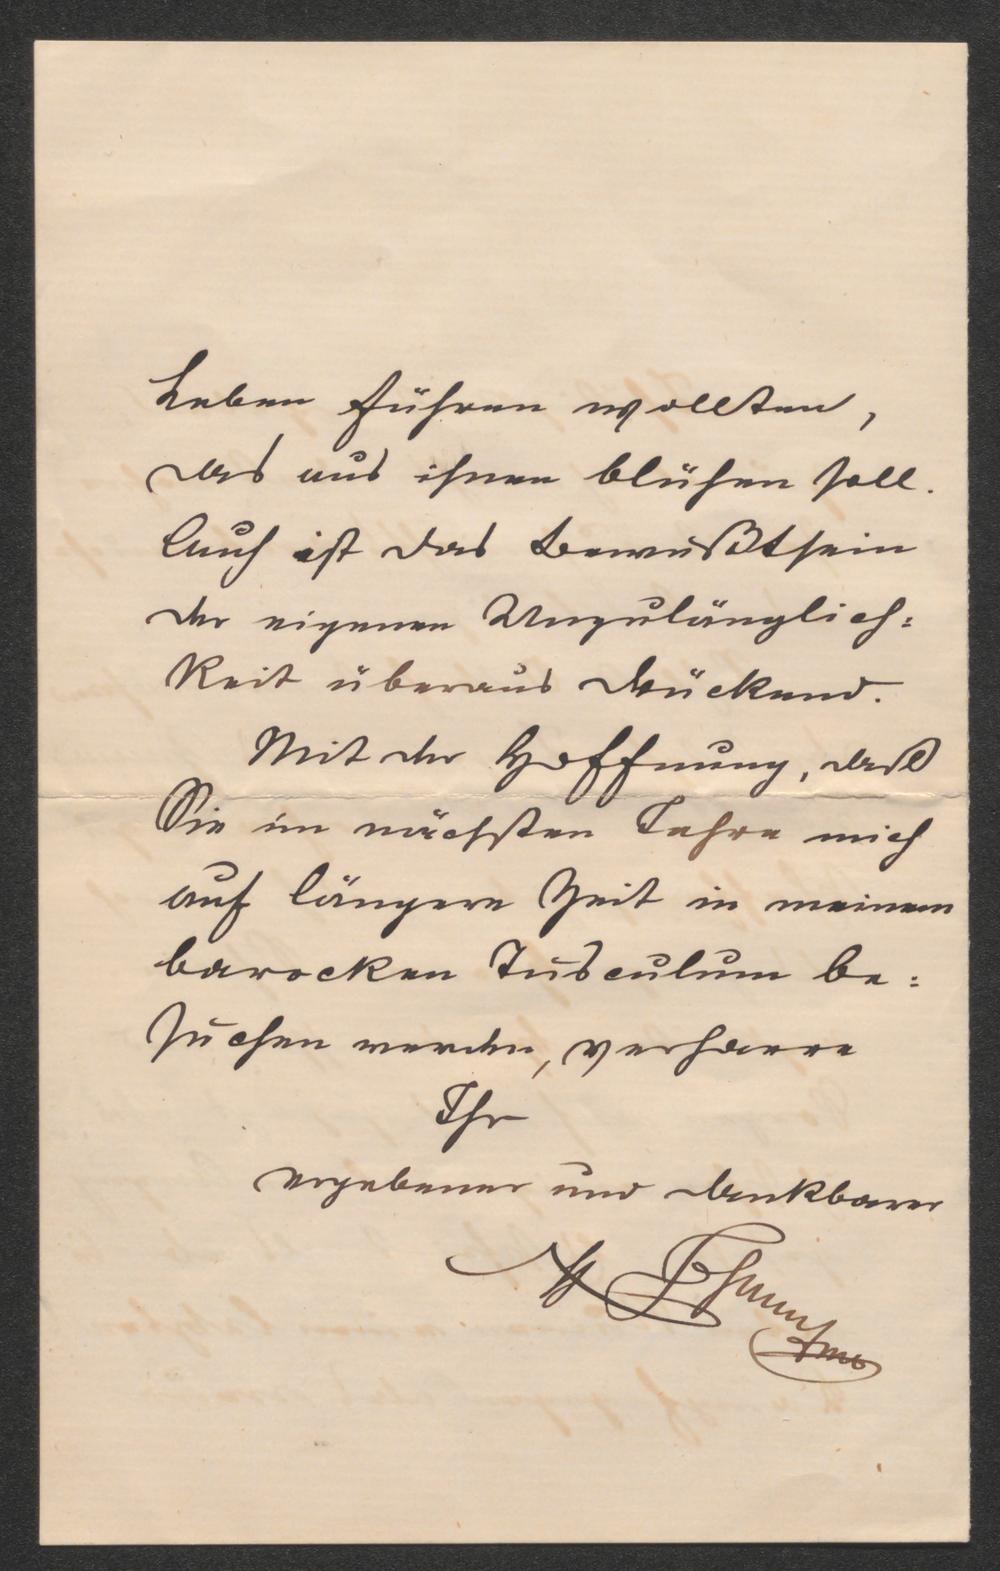 Leben führen wollten,
das aus ihnen blühen soll.
Auch ist das Bewußtsein
der eigenen Unzulänglich-
keit überaus drückend.
Mit der Hoffnung, daß
Sie im nächsten Jahre mich
auf längere Zeit in meinem
barocken Tusculum be-
suchen werden, verharre
Ihr
ergebener und dankbarer